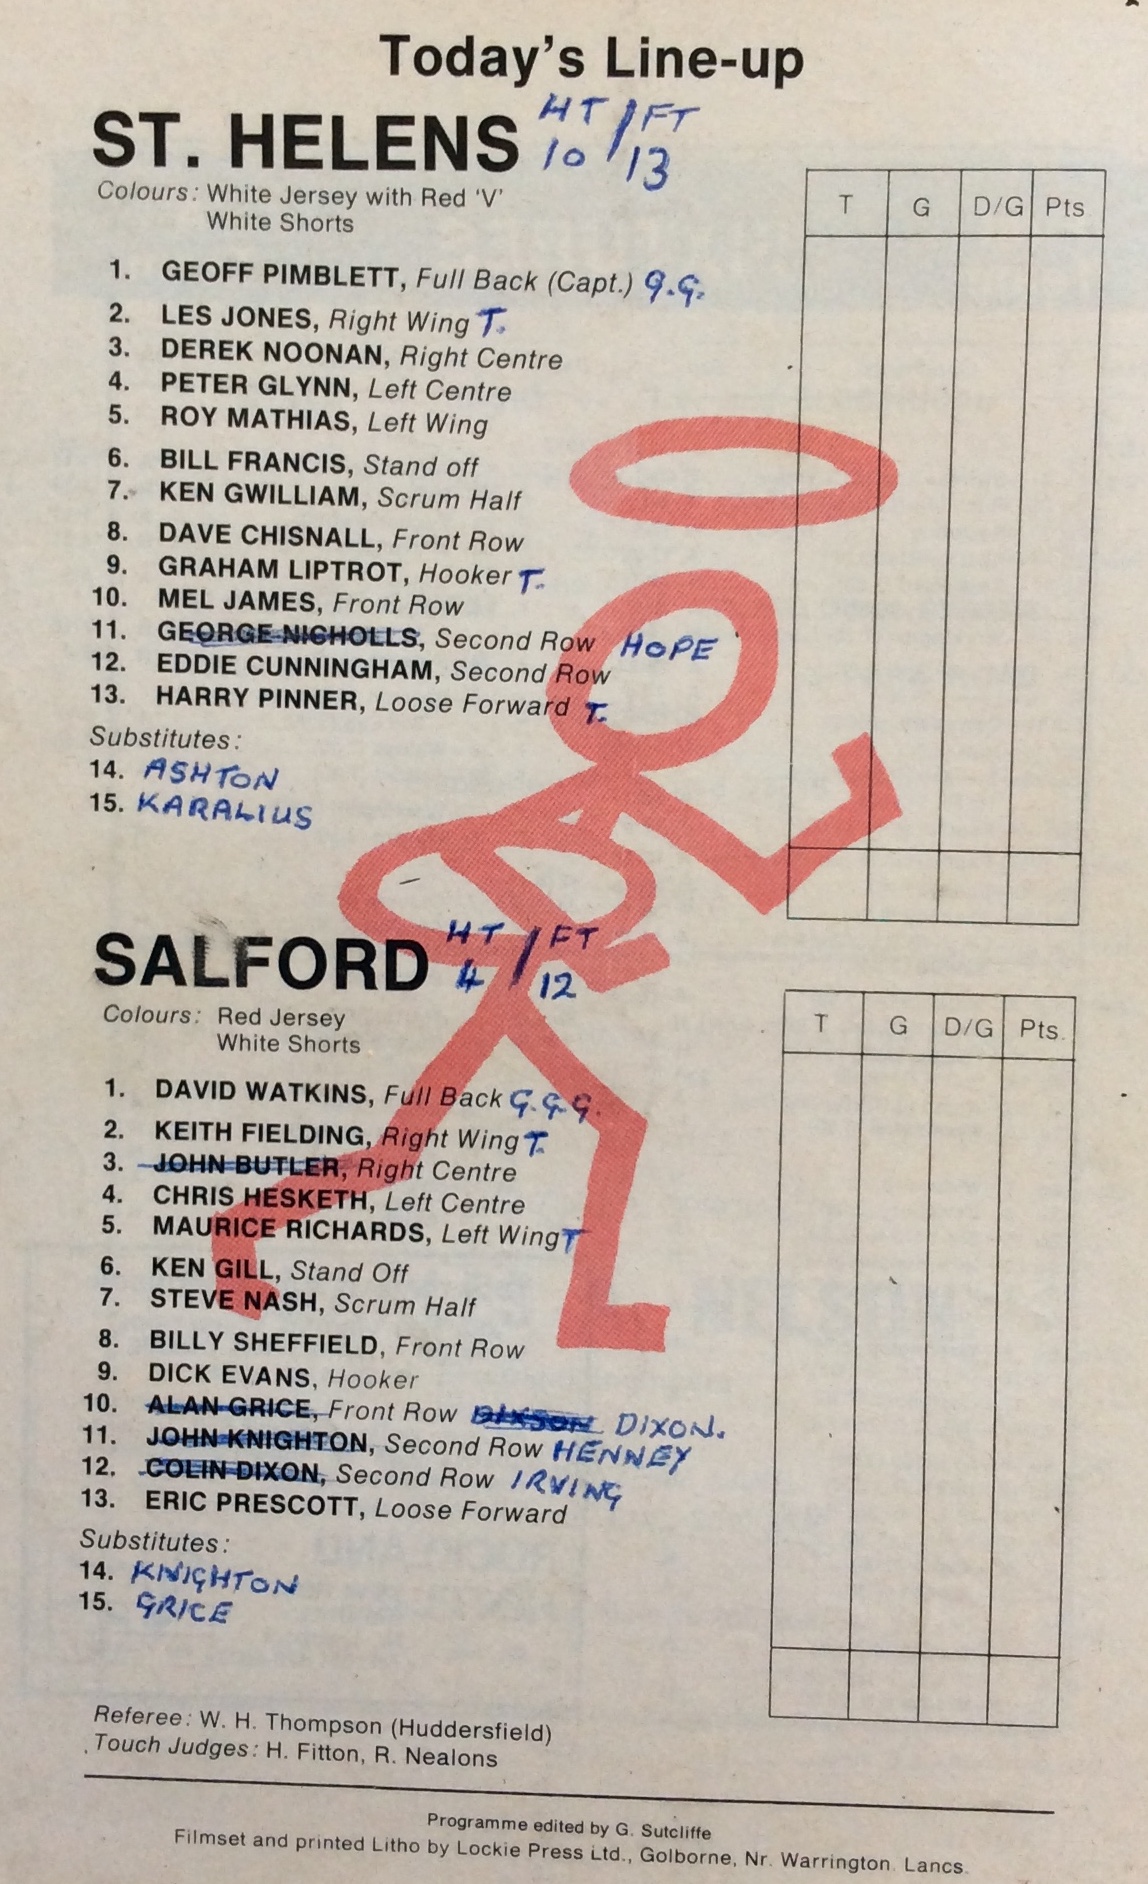 Today's Line-up
ST. HELENS HT / FT
10 / 13
Colours: White Jersey with Red 'V'
White Shorts
T G D/G Pts
1. GEOFF PIMBLETT, Full Back (Capt.) G.G.
2. LES JONES, Right Wing T.
3. DEREK NOONAN, Right Centre
4. PETER GLYNN, Left Centre
5. ROY MATHIAS, Left Wing
6. BILL FRANCIS, Stand off
7. KEN GWILLIAM, Scrum Half
8. DAVE CHISNALL, Front Row
9. GRAHAM LIPTROT, Hooker T.
10. MEL JAMES, Front Row
11. GEORGE NICHOLLS, Second Row HOPE
12. EDDIE CUNNINGHAM, Second Row
13. HARRY PINNER, Loose Forward T.
Substitutes:
14. ASHTON
15. KARALIUS
SALFORD HT / FT
4 / 12
Colours: Red Jersey
White Shorts
T G D/G Pts.
1. DAVID WATKINS, Full Back G.G.G.
2. KEITH FIELDING, Right Wing T.
3. JOHN BUTLER, Right Centre
4. CHRIS HESKETH, Left Centre
5. MAURICE RICHARDS, Left Wing T
6. KEN GILL, Stand Off
7. STEVE NASH, Scrum Half
8. BILLY SHEFFIELD, Front Row
9. DICK EVANS, Hooker
10. ALAN GRICE, Front Row DIXSON DIXON.
11. JOHN KNIGHTON, Second Row HENNEY
12. COLIN DIXON, Second Row IRVING
13. ERIC PRESCOTT, Loose Forward
Substitutes:
14. KNIGHTON
15. GRICE
Referee: W. H. Thompson (Huddersfield)
Touch Judges: H. Fitton, R. Nealons
Programme edited by G. Sutcliffe
Filmset and printed Litho by Lockie Press Ltd., Golborne, Nr. Warrington. Lancs.